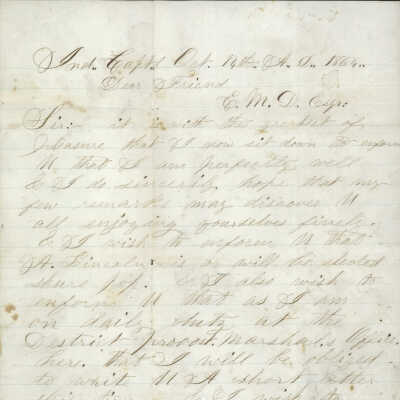 Ind. Capts Oct. 14th. A. D. 1864.
Dear Friend
E. M. D. Esqr:
Sir: it is with the greatest of
pleasure that I now sit down to inform
U that I am perfectly well
& I do sincerely hope that my
few remarks may discover U
all enjoying yourselves finely.
& I wish to inform U that
A. Lincoln is or will be elected
shure pop. & I also wish to
inform U that as I am
on daily duty at the
District Provost Marshals Office
here that I will be obliged
to write U A short letter
this time & I wish to